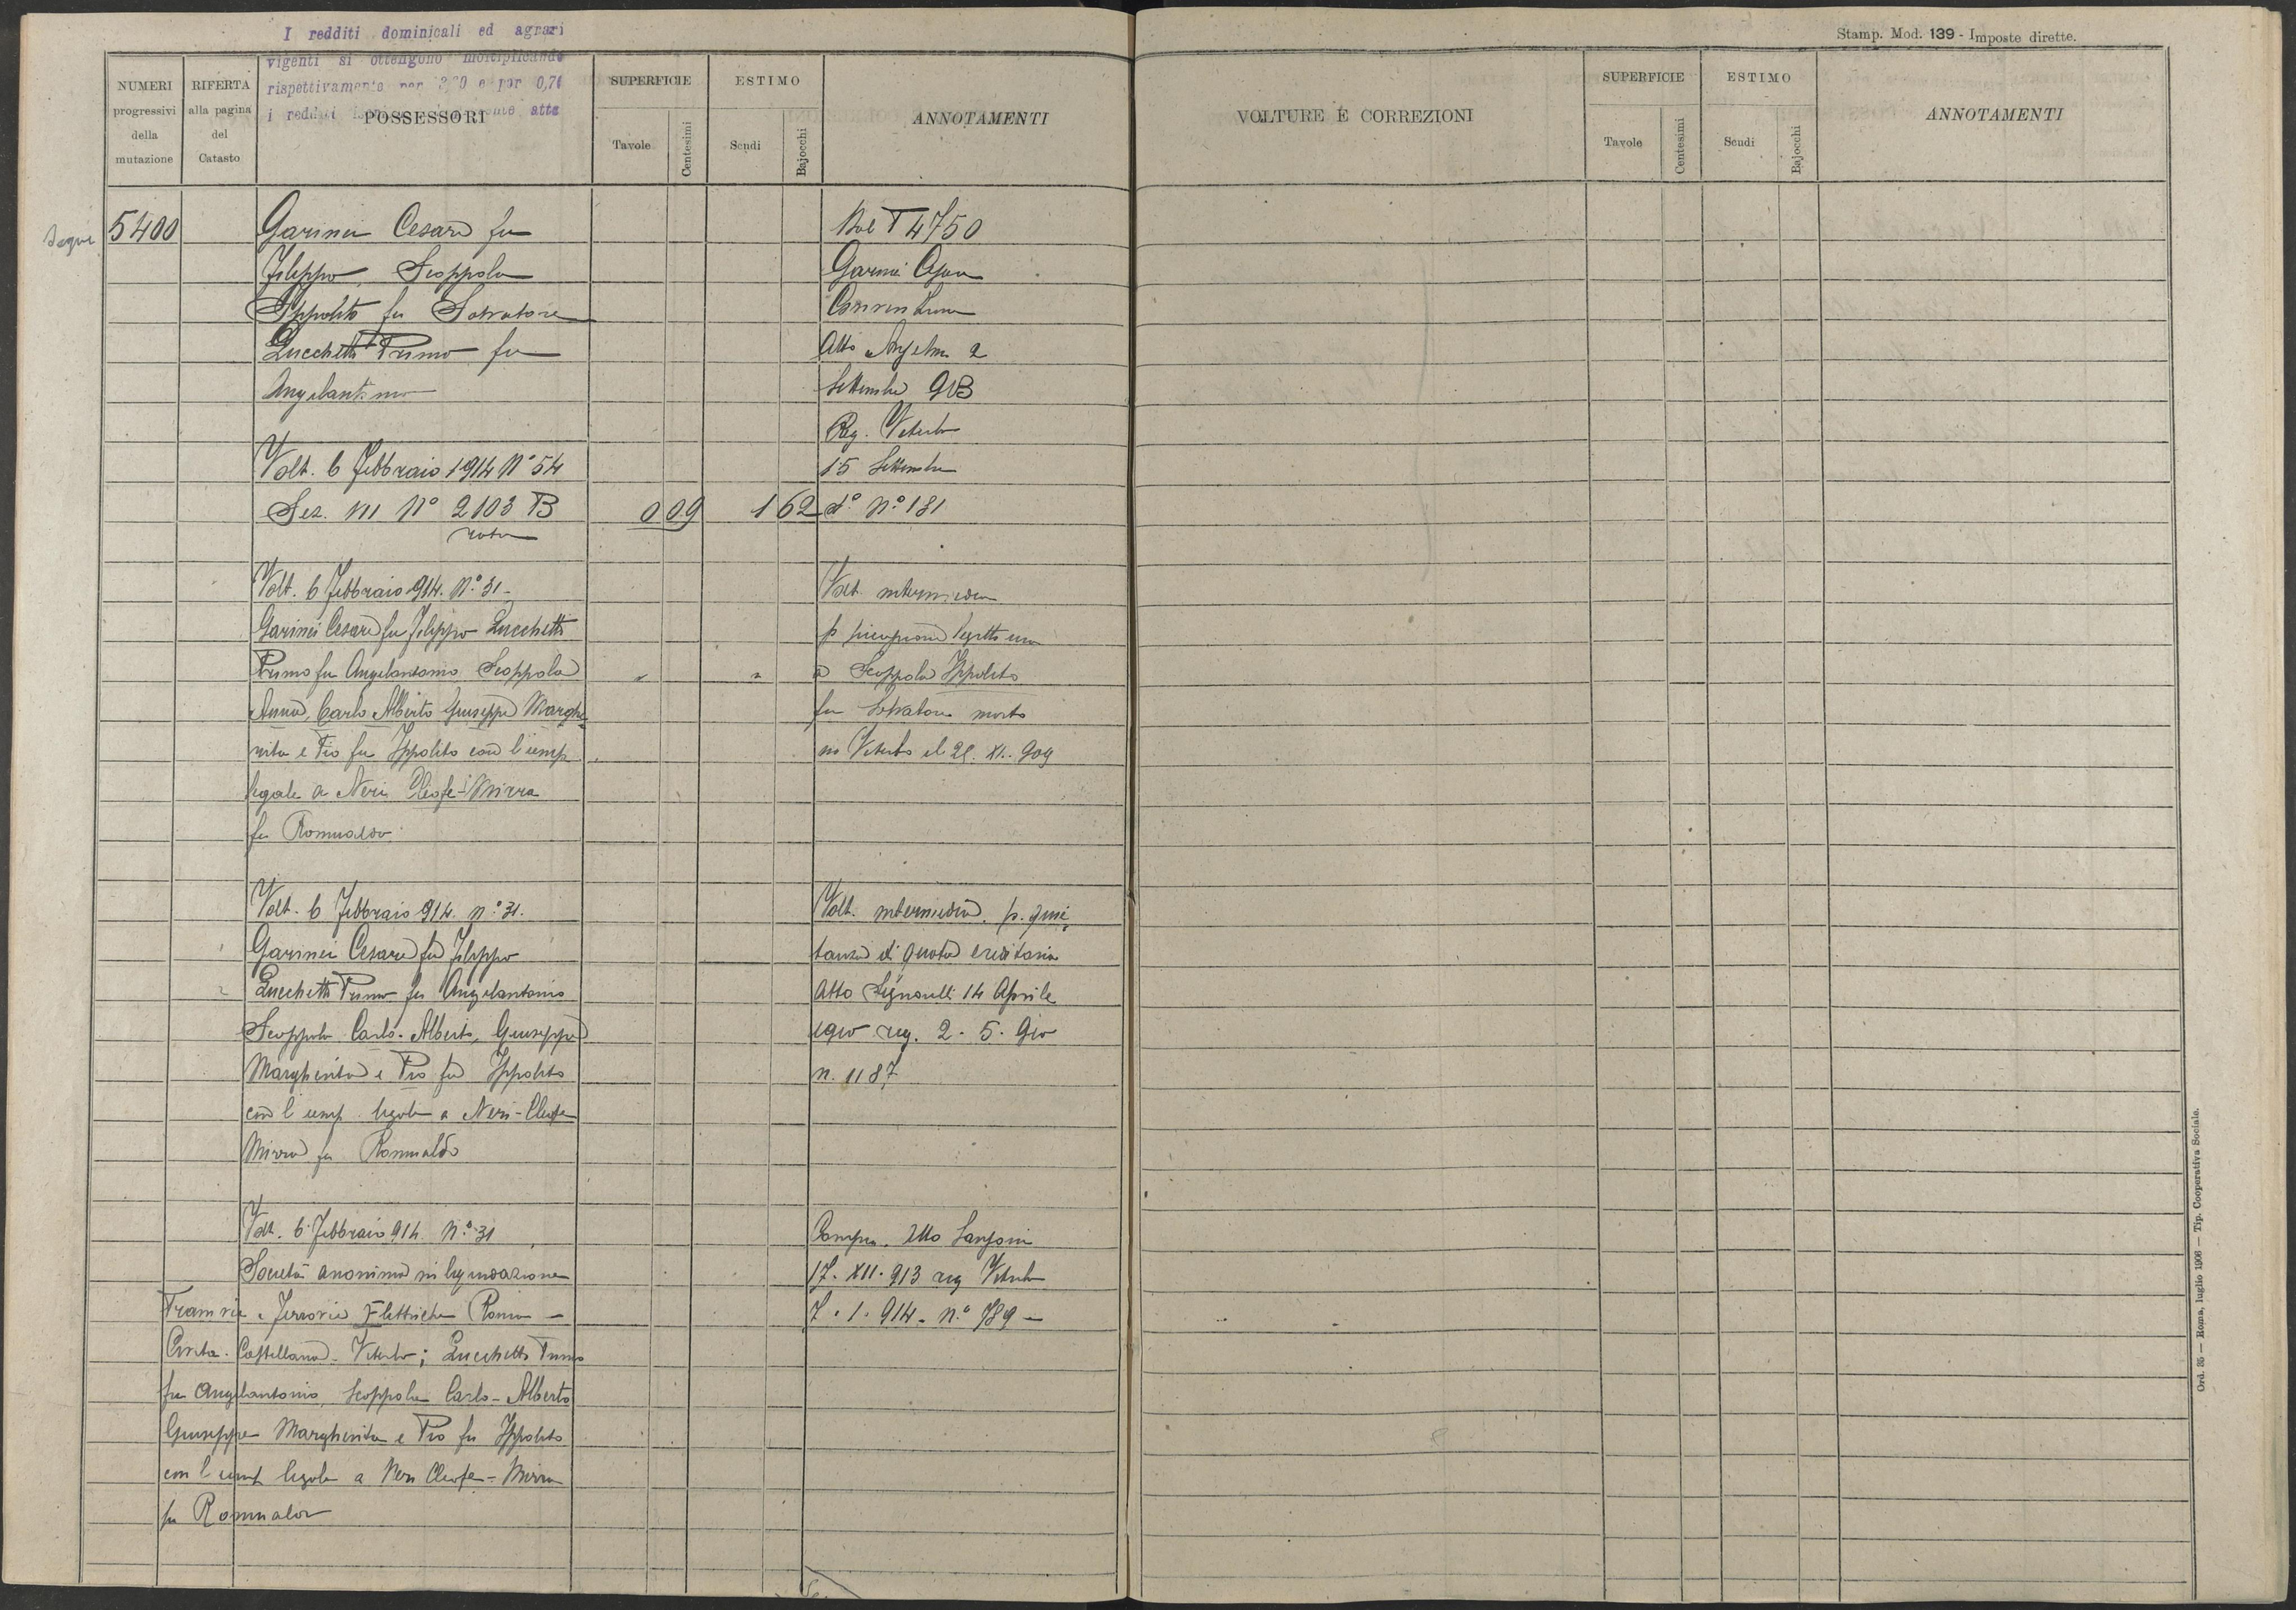 I redditi dominicali ed agrari
vigenti si ottengono moltiplicando
rispettivamente per e per 0,70
i redditi
Stamp. Mod. 139 - Imposte dirette.
NUMERI progressivi della mutazione
RIFERTA alla pagina del Catasto
POSSESSORI
SUPERFICIE
Tavole
Centesimi
ESTIMO
Scudi
Bajocchi
ANNOTAMENTI
VOLTURE E CORREZIONI
SUPERFICIE
Tavole
Centesimi
ESTIMO
Scudi
Bajocchi
ANNOTAMENTI
Segue 5400 Garinei Cesare fu
Filippo, Scoppola
Ippolito fu Salvatore
Lucchetti Primo fu
Angelantonio
Volt. 6 Febbraio 1914 N° 54
Sez. VII N° 2103 B 0 09 1 62
T 4750
Garinei Cesare
Atto Anselmi 2
Settembre 913
Reg. Viterbo
15 Settembre
d° N° 181
Volt. 6 Febbraio 914. N° 31 -
Garinei Cesare fu Filippo Lucchetti
Primo fu Angelantonio Scoppola
Anna, Carlo Alberto Giuseppe Marghe
rita e Pio fu Ippolito con l'usuf.
legale a Neri Cleofe-Mirra
fu Romualdo
Volt. intermedia
p. successione legittima
a Scoppola Ippolito
fu Salvatore morto
in Viterbo il 28. XI. 909
Volt. 6 Febbraio 914. n° 31.
Garinei Cesare fu Filippo
Lucchetti Primo fu Angelantonio
Scoppola Carlo-Alberto, Giuseppe
Margherita e Pio fu Ippolito
con l'usuf. legale a Neri-Cleofe
Mirra fu Romualdo
Volt. intermedia. p. quie
tanza di quota ereditaria
Atto Signorelli 14 Aprile
1910 reg. 2. 5. 910
n. 1187
Volt. 6 Febbraio 914. N° 31
Società anonima in liquidazione
Tramvie e Ferrovie Elettriche Roma -
Civita-Castellana-Viterbo; Lucchetti Primo
fu Angelantonio, Scoppola Carlo-Alberto
Giuseppe Margherita e Pio fu Ippolito
con l'usuf. legale a Neri Cleofe-Mirra
fu Romualdo
Compra. Atto
17. XII. 913 reg Viterbo
7. 1. 914 - n° 789 -
Ord. 35 — Roma, luglio 1906 — Tip. Cooperativa Sociale.